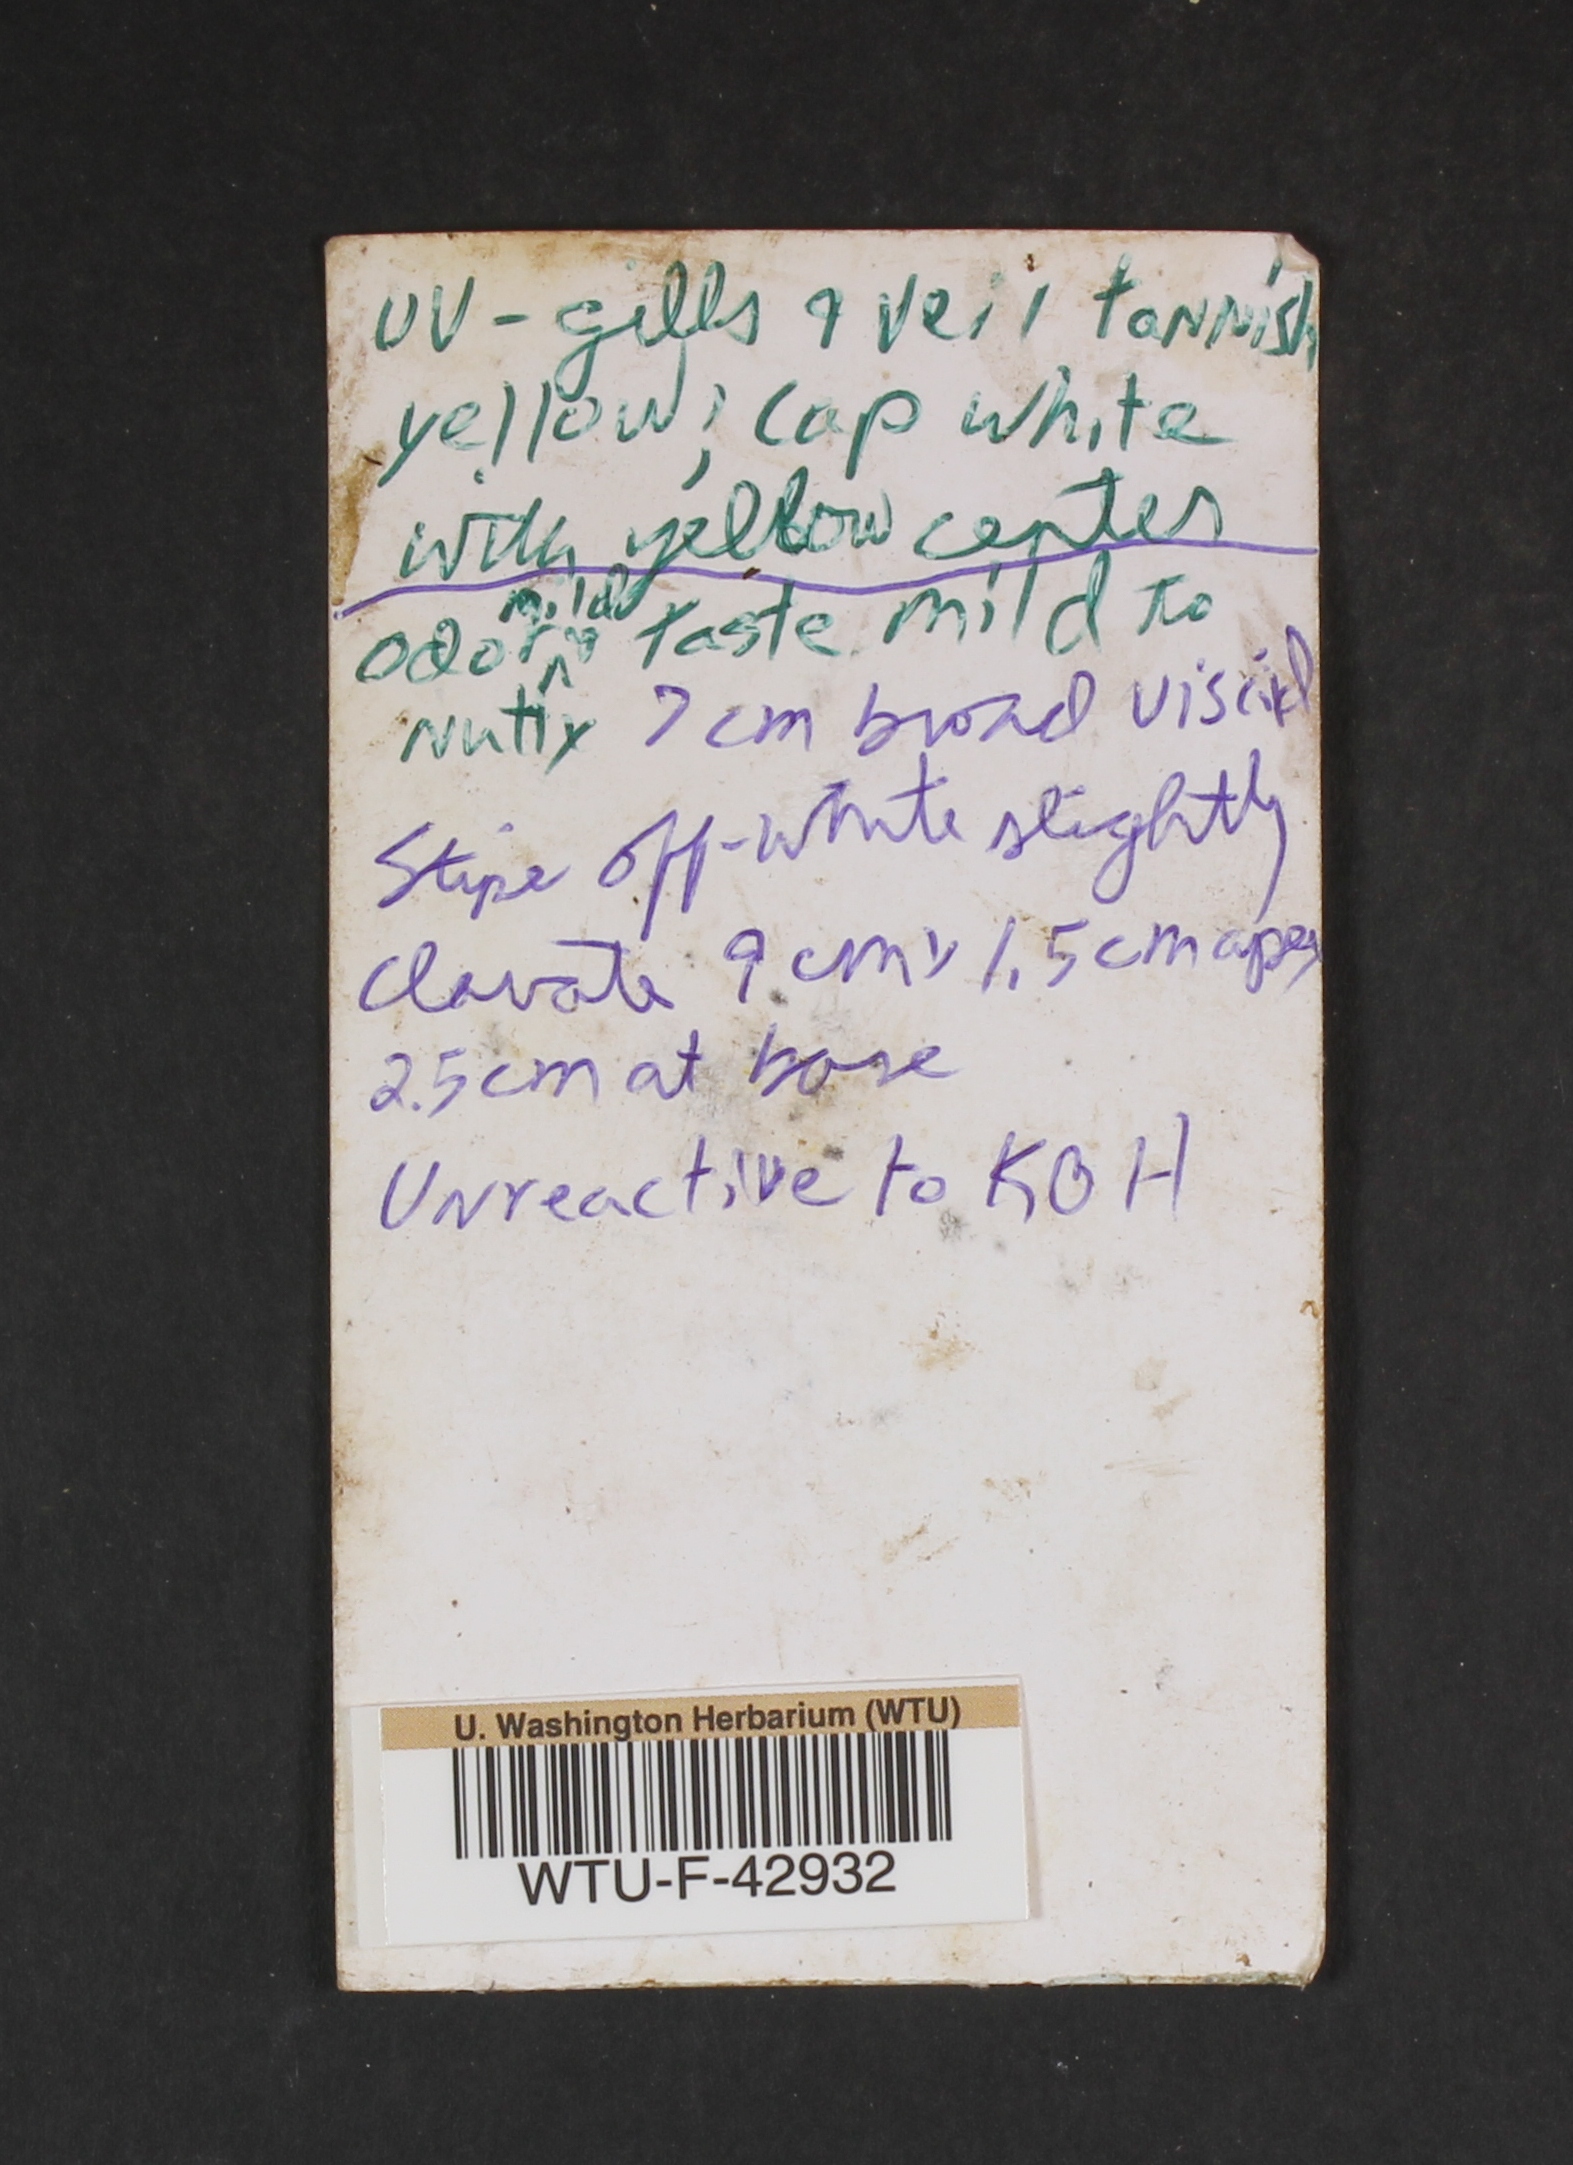 UV - gills & veil tannish
yellow; cap white
with yellow center
odor mild taste mild to
nutty 7 cm broad viscid
Stipe off-white slightly
clavate 9 cm x 1.5 cm apex
2.5 cm at base
Unreactive to KOH
U. Washington Herbarium (WTU)
WTU-F-42932